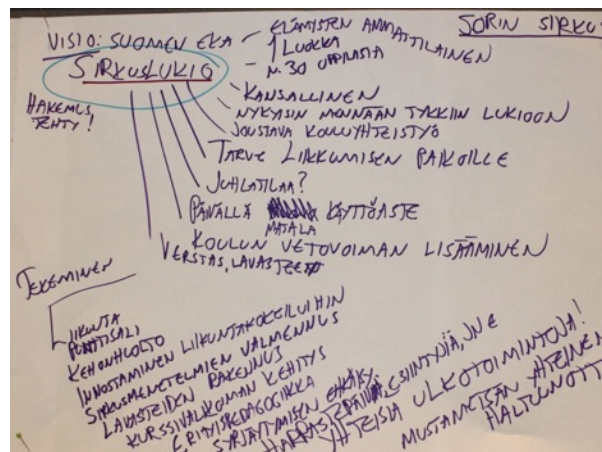 SORIN SIRKUS
VISIO: SUOMEN EKA
SIRKUSLUKIO
HAKEMUS TEHTY!
ELÄMYSTEN AMMATTILAINEN
1 LUOKKA
N. 30 OPPILASTA
KANSALLINEN
NYKYISIN MENNÄÄN TYKKIIN LUKIOON
JOUSTAVA KOULUYHTEISTYÖ
TARVE LIIKKUMISEN PAIKOILLE
JUHLATILAA?
PÄIVÄLLÄ MATALA KÄYTTÖASTE
KOULUN VETOVOIMAN LISÄÄMINEN
VERSTAS, LAVASTEET
TEKEMINEN
LIIKUNTA
PUNTTISALI
KEHONHUOLTO
INNOSTAMINEN LIIKUNTAKOKEILUIHIN
SIRKUSMENETELMIEN VALMENNUS
LAVASTEIDEN RAKENNUS
KURSSIVALIKOIMAN KEHITYS
ERITYISPEDAGOGIIKKA
SYRJÄYTYMISEN EHKÄISY
ESIINTYJIÄ, JNE
YHTEISIÄ ULKOTOIMINTOJA!
MUSTAMETSÄN YHTEINEN
HALTUUNOTTO